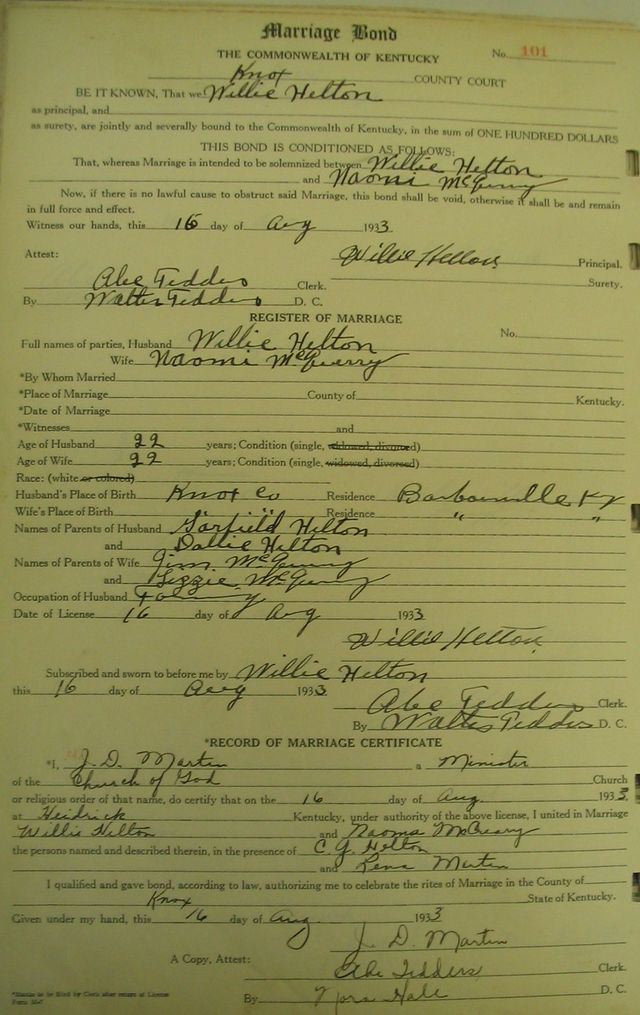 Marriage Bond
THE COMMONWEALTH OF KENTUCKY No. 101
Knox COUNTY COURT
BE IT KNOWN, That we Willie Helton
as principal, and
as surety, are jointly and severally bound to the Commonwealth of Kentucky, in the sum of ONE HUNDRED DOLLARS
THIS BOND IS CONDITIONED AS FOLLOWS:
That, whereas Marriage is intended to be solemnized between Willie Helton
and Naomi
Now, if there is no lawful cause to obstruct said Marriage, this bond shall be void, otherwise it shall be and remain
in full force and effect.
Witness our hands, this 16 day of Aug 1933
Attest: Willie Helton Principal.
Abe Tedders Clerk. Surety.
By Walter Tedders D. C.
REGISTER OF MARRIAGE
Full names of parties, Husband Willie Helton No.
Wife Naomi
*By Whom Married
*Place of Marriage County of Kentucky.
*Date of Marriage
*Witnesses and
Age of Husband 22 years; Condition (single, widowed, divorced)
Age of Wife 22 years; Condition (single, widowed, divorced)
Race: (white or colored)
Husband's Place of Birth Knox Co Residence Barbourville Ky
Wife's Place of Birth " " Residence " "
Names of Parents of Husband Garfield Helton
and Dollie Helton
Names of Parents of Wife Jim
and Lizzie
Occupation of Husband
Date of License 16 day of Aug 1933
Willie Helton
Subscribed and sworn to before me by Willie Helton
this 16 day of Aug 1933
Abe Tedders Clerk.
By Walter Tedders D. C.
*RECORD OF MARRIAGE CERTIFICATE
*I, J. D. Martin a Minister
of the Church of God Church
or religious order of that name, do certify that on the 16 day of Aug. 1933,
at Heidrick Kentucky, under authority of the above license, I united in Marriage
Willie Helton and Naoma McCreary
the persons named and described therein, in the presence of C. G. Helton
and Lena Martin
I qualified and gave bond, according to law, authorizing me to celebrate the rites of Marriage in the County of
Knox State of Kentucky.
Given under my hand, this 16 day of Aug. 1933
J. D. Martin
A Copy, Attest: Abe Tedders Clerk.
By Nora Hale D. C.